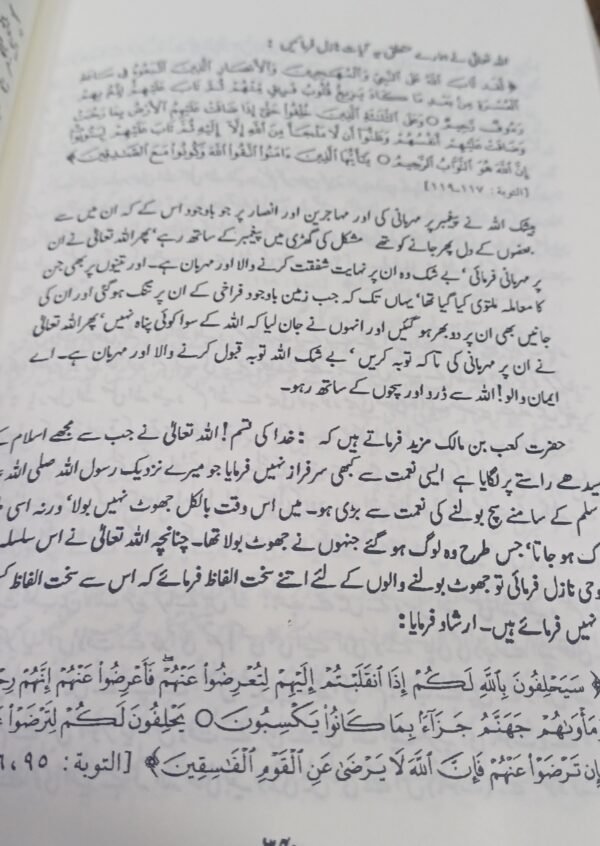 اللہ تعالیٰ نے ہمارے متعلق یہ آیات نازل فرمائیں :
﴿ لَقَد تَّابَ ٱللَّهُ عَلَى ٱلنَّبِيِّ وَٱلْمُهَـٰجِرِينَ وَٱلْأَنصَارِ ٱلَّذِينَ ٱتَّبَعُوهُ فِى سَاعَةِ
ٱلْعُسْرَةِ مِنۢ بَعْدِ مَا كَادَ يَزِيغُ قُلُوبُ فَرِيقٍ مِّنْهُمْ ثُمَّ تَابَ عَلَيْهِمْ إِنَّهُۥ بِهِمْ
رَءُوفٌ رَّحِيمٌ ○ وَعَلَى ٱلثَّلَـٰثَةِ ٱلَّذِينَ خُلِّفُوا۟ حَتَّىٰٓ إِذَا ضَاقَتْ عَلَيْهِمُ ٱلْأَرْضُ بِمَا رَحُبَتْ
وَضَاقَتْ عَلَيْهِمْ أَنفُسُهُمْ وَظَنُّوٓا۟ أَن لَّا مَلْجَأَ مِنَ ٱللَّهِ إِلَّآ إِلَيْهِ ثُمَّ تَابَ عَلَيْهِمْ لِيَتُوبُوٓا۟
إِنَّ ٱللَّهَ هُوَ ٱلتَّوَّابُ ٱلرَّحِيمُ ○ يَـٰٓأَيُّهَا ٱلَّذِينَ ءَامَنُوا۟ ٱتَّقُوا۟ ٱللَّهَ وَكُونُوا۟ مَعَ ٱلصَّـٰدِقِينَ ﴾
[التوبة: ۱۱۷۔۱۱۹]
بیشک اللہ نے پیغمبر پر مہربانی کی اور مہاجرین اور انصار پر جو باوجود اس کے کہ ان میں سے
بعضوں کے دل پھر جانے کو تھے مشکل کی گھڑی میں پیغمبر کے ساتھ رہے‘ پھر اللہ تعالیٰ نے ان
پر مہربانی فرمائی‘ بے شک وہ ان پر نہایت شفقت کرنے والا اور مہربان ہے۔ اور تینوں پر بھی جن
کا معاملہ ملتوی کیا گیا تھا‘ یہاں تک کہ جب زمین باوجود فراخی کے ان پر تنگ ہو گئی اور ان کی
جانیں بھی ان پر دوبھر ہو گئیں اور انہوں نے جان لیا کہ اللہ کے سوا کوئی پناہ نہیں‘ پھر اللہ تعالیٰ
نے ان پر مہربانی کی تا کہ توبہ کریں‘ بے شک اللہ توبہ قبول کرنے والا اور مہربان ہے۔ اے
ایمان والو! اللہ سے ڈرو اور سچوں کے ساتھ رہو۔
حضرت کعب بن مالک مزید فرماتے ہیں کہ : خدا کی قسم! اللہ تعالیٰ نے جب سے مجھے اسلام کے
سیدھے راستے پر لگایا ہے ایسی نعمت سے کبھی سرفراز نہیں فرمایا جو میرے نزدیک رسول اللہ صلی اللہ
سلم کے سامنے سچ بولنے کی نعمت سے بڑی ہو۔ میں اس وقت بالکل جھوٹ نہیں بولا‘ ورنہ اسی
ک ہو جاتا‘ جس طرح وہ لوگ ہو گئے جنہوں نے جھوٹ بولا تھا۔ چنانچہ اللہ تعالیٰ نے اس سلسلہ
وحی نازل فرمائی تو جھوٹ بولنے والوں کے لئے اتنے سخت الفاظ فرمائے کہ اس سے سخت الفاظ
نہیں فرمائے ہیں۔ ارشاد فرمایا :
﴿ سَيَحْلِفُونَ بِٱللَّهِ لَكُمْ إِذَا ٱنقَلَبْتُمْ إِلَيْهِمْ لِتُعْرِضُوا۟ عَنْهُمْ ۖ فَأَعْرِضُوا۟ عَنْهُمْ إِنَّهُمْ رِجْ
وَمَأْوَىٰهُمْ جَهَنَّمُ جَزَآءًۢ بِمَا كَانُوا۟ يَكْسِبُونَ ○ يَحْلِفُونَ لَكُمْ لِتَرْضَوْا۟
إِن تَرْضَوْا۟ عَنْهُمْ فَإِنَّ ٱللَّهَ لَا يَرْضَىٰ عَنِ ٱلْقَوْمِ ٱلْفَـٰسِقِينَ ﴾ [التوبة: ۹۵،